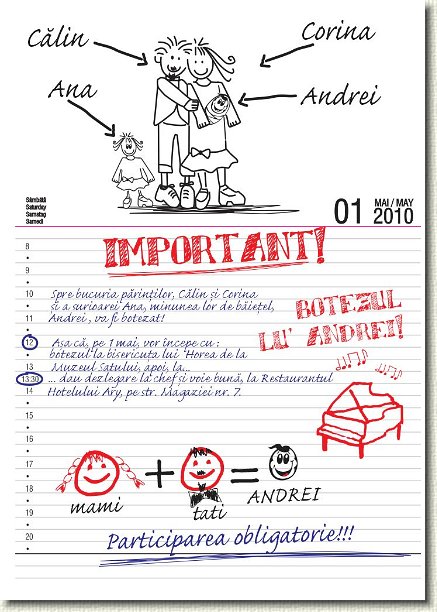 Călin
Corina
Ana
Andrei
Sâmbătă
Saturday
Samstag
Samedi
01 MAI / MAY
2010
8
IMPORTANT!
9
10 Spre bucuria părinţilor, Călin şi Corina
şi a surioarei Ana, minunea lor de băieţel,
11 Andrei, va fi botezat!
BOTEZUL
LU' ANDREI!
12 Aşa că, pe 1 mai, vor începe cu:
botezul la bisericuta lui "Horea de la
13 Muzeul Satului, apoi, la...
13:30 ... dau dezlegare la chef şi voie bună, la Restaurantul
14 Hotelului Ary, pe str. Magaziei nr. 7.
15
16
17
+ =
18
mami tati ANDREI
19
20 Participarea obligatorie!!!